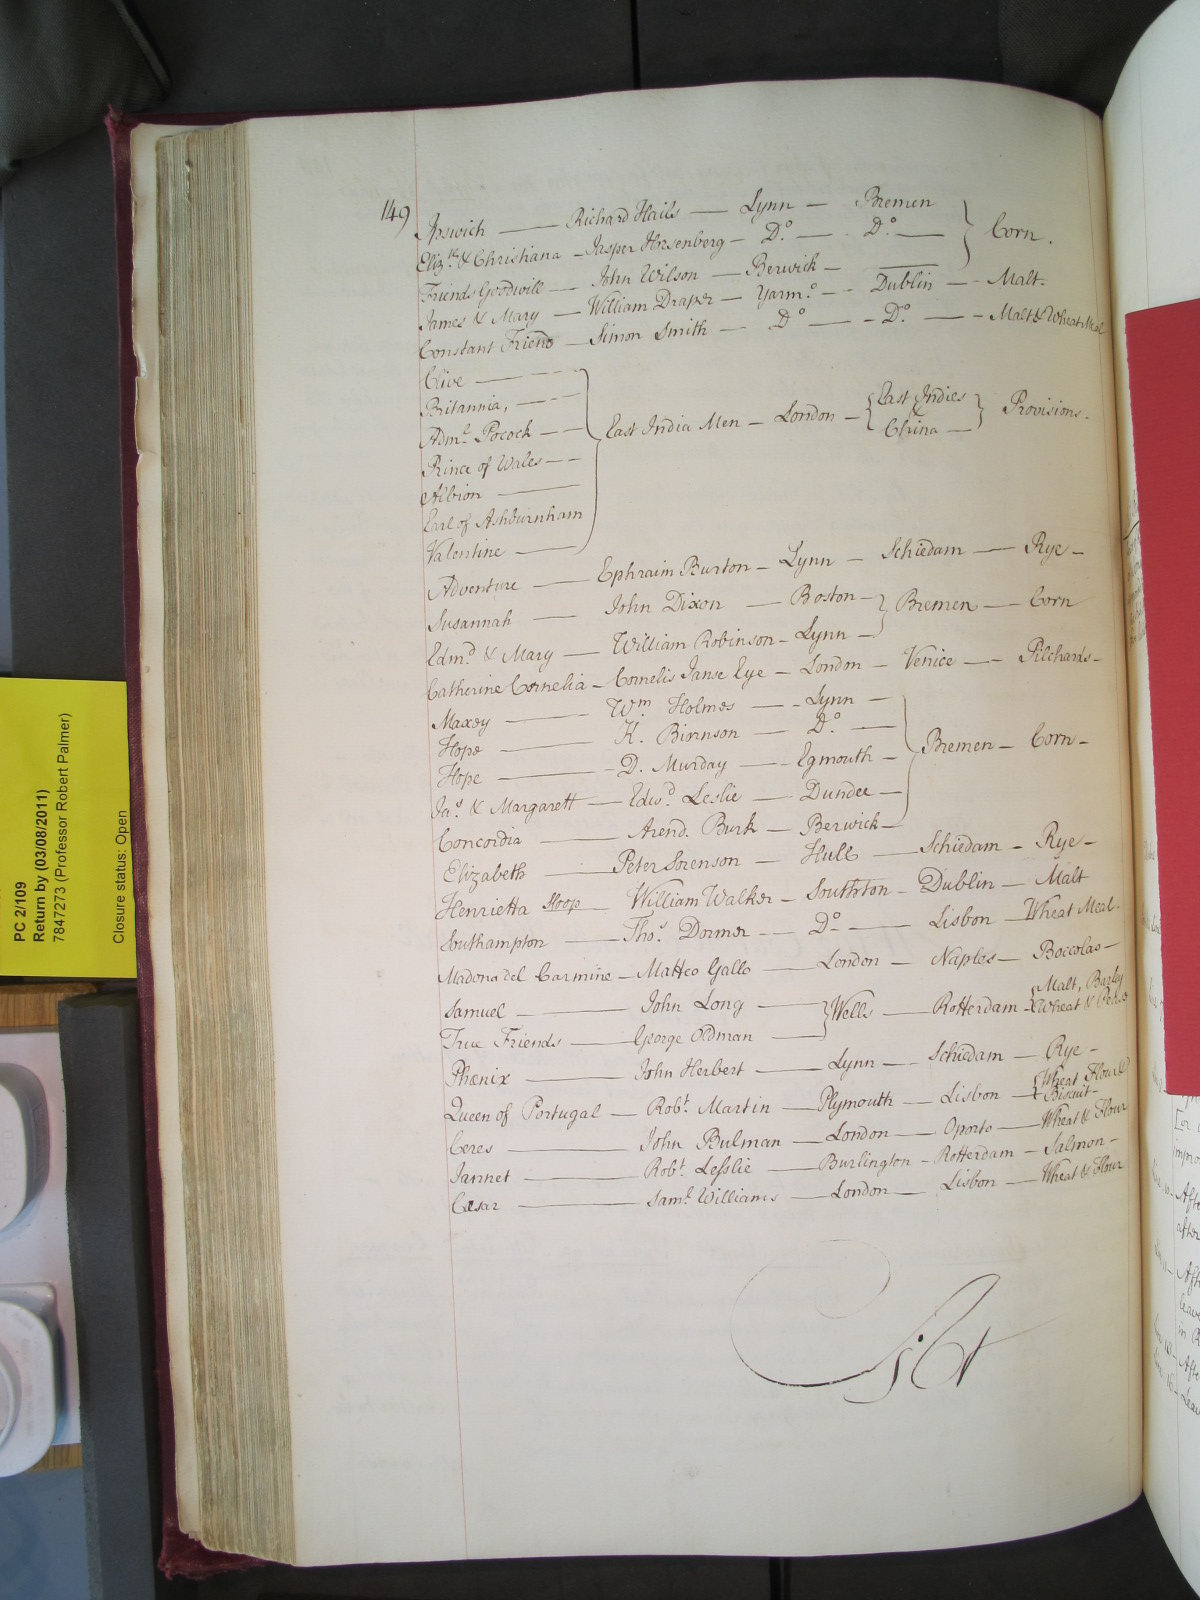 149
Ipswich — Richard Hails — Lynn — Bremen
Eliz.th & Christiana – Jasper Horsenberg – D.o — D.o — } Corn.
Friends Goodwill — John Wilson — Berwick –
James & Mary — William Draper — Yarm.o — Dublin — Malt.
Constant Friend — Simon Smith — D.o — D.o — Malt & Wheat Meal
Clive —
Britannia, —
Adm.l Pocock — East India Men – London – { East Indies & China } Provisions.
Prince of Wales —
Albion —
Earl of Ashburnham
Valentine —
Adventure — Ephraim Burton – Lynn – Schiedam — Rye –
Susannah — John Dixon — Boston – } Bremen — Corn
Edm.d & Mary — William Robinson – Lynn –
Catherine Cornelia – Cornelis Janse Eye – London – Venice — Pilchards –
Maxey — W.m Holmes — Lynn —
Hope — K. Birnson — D.o —
Hope — D. Murday — Egmouth – } Bremen – Corn –
Ja.s & Margarett — Edw.d Leslie — Dundee —
Concordia — Arend. Burk — Berwick —
Elizabeth — Peter Sorenson — Hull — Schiedam – Rye –
Henrietta Sloop — William Walker – Southton – Dublin – Malt
Southampton — Tho.s Dormer — D.o — Lisbon — Wheat Meal.
Madona del Carmine – Matteo Gallo — London — Naples – Boccolao –
Samuel — John Long — } Wells — Rotterdam – { Malt, Barley Wheat & Pease
True Friends — George Oldman —
Phœnix — John Herbert — Lynn — Schiedam — Rye –
Queen of Portugal — Rob.t Martin — Plymouth — Lisbon – { Wheat Flour & Biscuit –
Ceres — John Bulman — London — Oporto — Wheat & Flour
Jannet — Rob.t Leslie — Burlington – Rotterdam – Salmon –
Cæsar — Sam.l Williams — London — Lisbon — Wheat & Flour
PC 2/109
Return by (03/08/2011)
7847273 (Professor Robert Palmer)
Closure status: Open